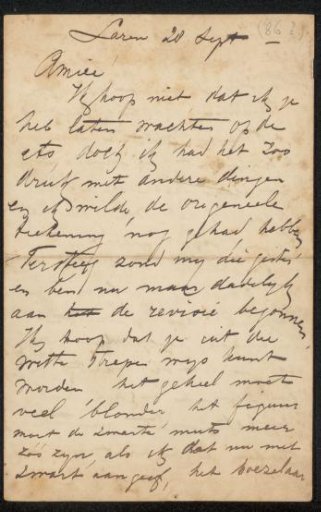 Laren 20 Sept (86?)
Amice!
Ik hoop niet dat ik je
heb laten wachten op de
ets doch ik had het zoo
druk met andere dingen
en ik wilde de origeneele
teekening nog gehad hebben
Tersteeg zond mij die gister
en ben nu maar dadelijk
aan de revisie begonnen
Ik hoop dat je uit die
witte strepen wijs kunt
worden het geheel moet
veel blonder, het figuur
moet de zwarte muts meer
zoo zijn, als ik dat nu met
zwart aangeef, het boezelaar